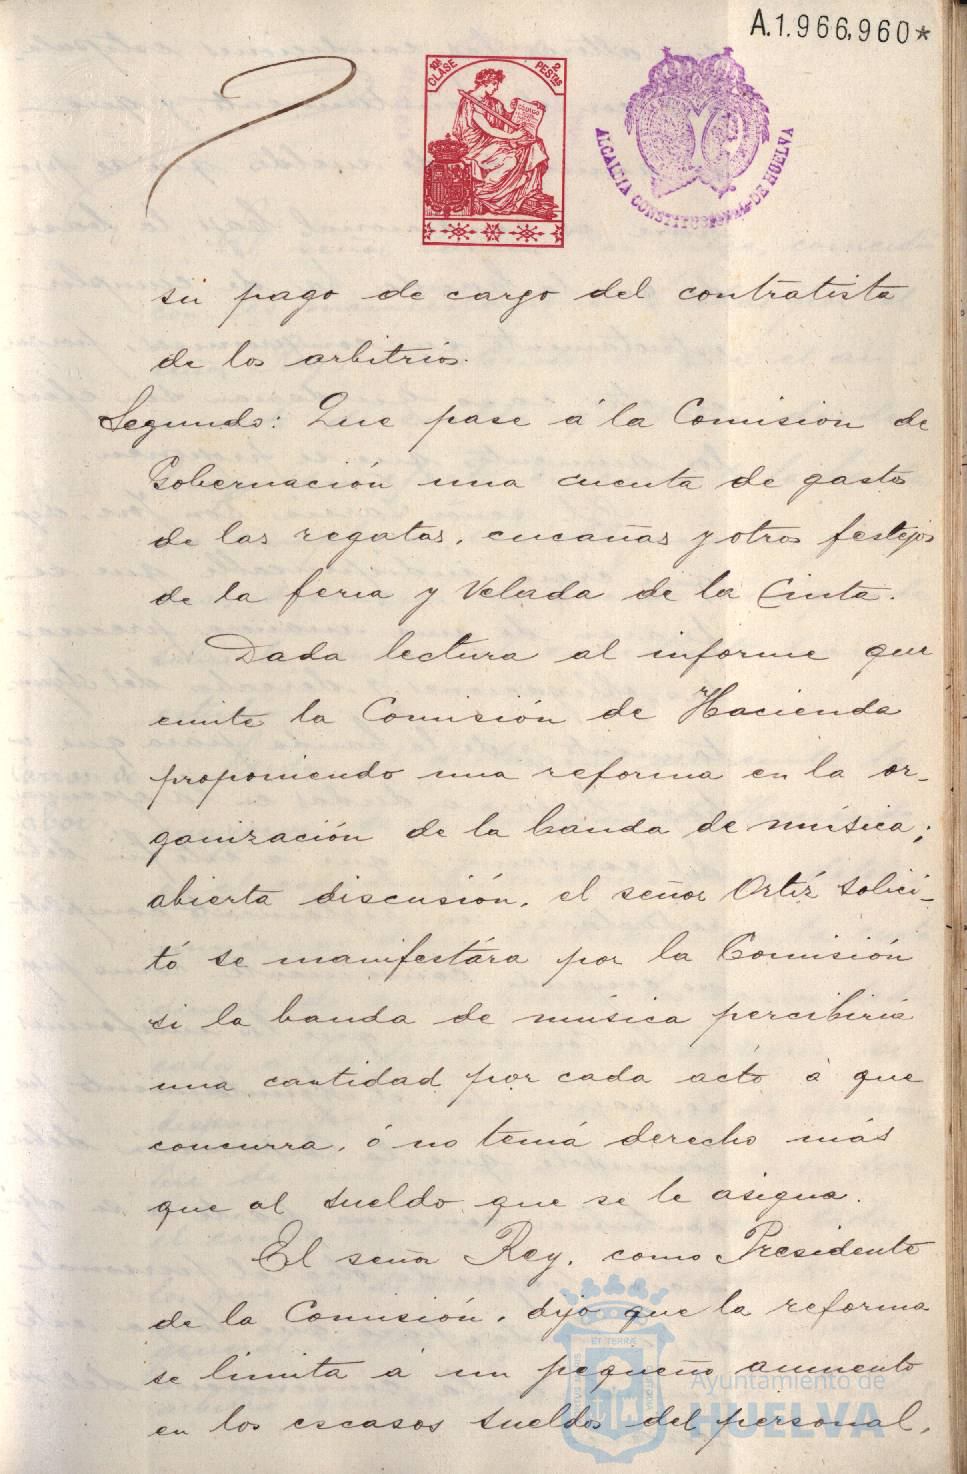 A.1.966,960*
10ª CLASE 2 PESTAS
ALCALDIA CONSTITUCIONAL DE HUELVA
su pago de cargo del contratista
de los arbitrios.
Segundo: Que pase á la Comision de
Gobernación una cuenta de gastos
de las regatas, cucañas y otros festejos
de la feria y Velada de la Cinta.
Dada lectura al informe que
emite la Comisión de Hacienda
proponiendo una reforma en la or-
ganización de la banda de música;
abierta discusión, el señor Ortíz solici-
tó se manifestára por la Comisión
si la banda de música percibiría
una cantidad por cada acto á que
concurra, ó no tenía derecho más
que al sueldo que se le asigna.
El señor Rey, como Presidente
de la Comisión, dijo que la reforma
se limita á un pequeño aumento
en los escasos sueldos del personal,
Ayuntamiento de
HUELVA